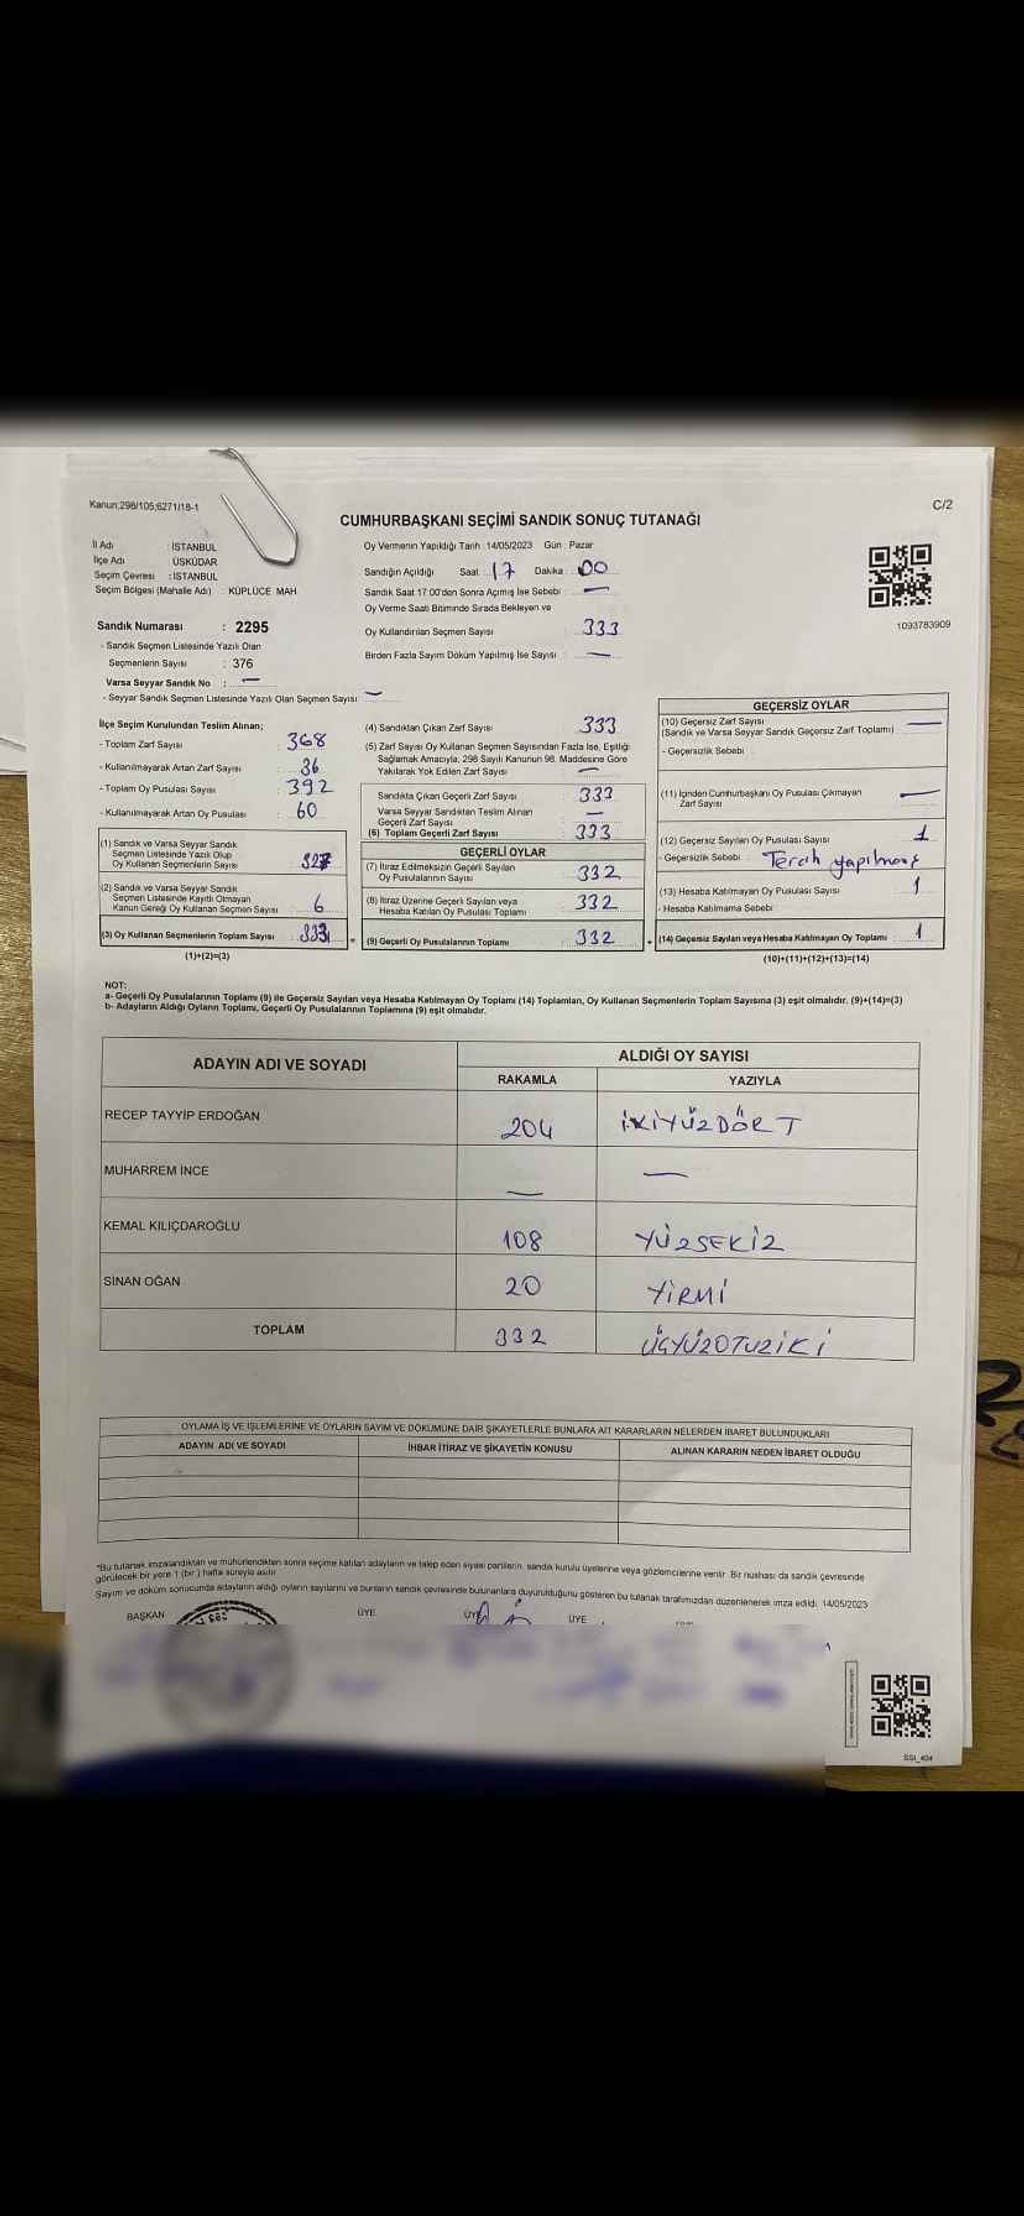 Kanun;298/105;6271/18-1
C/2
CUMHURBAŞKANI SEÇİMİ SANDIK SONUÇ TUTANAĞI
İl Adı : İSTANBUL
İlçe Adı : ÜSKÜDAR
Seçim Çevresi : İSTANBUL
Seçim Bölgesi (Mahalle Adı) KÜPLÜCE MAH
Sandık Numarası : 2295
- Sandık Seçmen Listesinde Yazılı Olan
Seçmenlerin Sayısı : 376
Varsa Seyyar Sandık No : —
- Seyyar Sandık Seçmen Listesinde Yazılı Olan Seçmen Sayısı —
Oy Vermenin Yapıldığı Tarih : 14/05/2023 Gün : Pazar
Sandığın Açıldığı Saat : 17 Dakika : 00
Sandık Saat 17:00'den Sonra Açılmış İse Sebebi : —
Oy Verme Saati Bitiminde Sırada Bekleyen ve
Oy Kullandırılan Seçmen Sayısı : 333
Birden Fazla Sayım Döküm Yapılmış İse Sayısı : —
1093783909
İlçe Seçim Kurulundan Teslim Alınan;
- Toplam Zarf Sayısı : 368
- Kullanılmayarak Artan Zarf Sayısı : 36
- Toplam Oy Pusulası Sayısı : 392
- Kullanılmayarak Artan Oy Pusulası : 60
(1) Sandık ve Varsa Seyyar Sandık
Seçmen Listesinde Yazılı Olup
Oy Kullanan Seçmenlerin Sayısı : 327
(2) Sandık ve Varsa Seyyar Sandık
Seçmen Listesinde Kayıtlı Olmayan
Kanun Gereği Oy Kullanan Seçmen Sayısı : 6
(3) Oy Kullanan Seçmenlerin Toplam Sayısı : 333
(1)+(2)=(3)
(4) Sandıktan Çıkan Zarf Sayısı : 333
(5) Zarf Sayısı Oy Kullanan Seçmen Sayısından Fazla İse, Eşitliği
Sağlamak Amacıyla, 298 Sayılı Kanunun 98. Maddesine Göre
Yakılarak Yok Edilen Zarf Sayısı : —
Sandıkta Çıkan Geçerli Zarf Sayısı : 333
Varsa Seyyar Sandıktan Teslim Alınan
Geçerli Zarf Sayısı : —
(6) Toplam Geçerli Zarf Sayısı : 333
GEÇERLİ OYLAR
(7) İtiraz Edilmeksizin Geçerli Sayılan
Oy Pusulalarının Sayısı : 332
(8) İtiraz Üzerine Geçerli Sayılan veya
Hesaba Katılan Oy Pusulası Toplamı : 332
= (9) Geçerli Oy Pusulalarının Toplamı : 332
GEÇERSİZ OYLAR
(10) Geçersiz Zarf Sayısı : —
(Sandık ve Varsa Seyyar Sandık Geçersiz Zarf Toplamı)
- Geçersizlik Sebebi :
(11) İçinden Cumhurbaşkanı Oy Pusulası Çıkmayan
Zarf Sayısı : —
(12) Geçersiz Sayılan Oy Pusulası Sayısı : 1
- Geçersizlik Sebebi : Tercih yapılmamış
(13) Hesaba Katılmayan Oy Pusulası Sayısı : 1
- Hesaba Katılmama Sebebi :
+ (14) Geçersiz Sayılan veya Hesaba Katılmayan Oy Toplamı : 1
(10)+(11)+(12)+(13)=(14)
NOT:
a- Geçerli Oy Pusulalarının Toplamı (9) ile Geçersiz Sayılan veya Hesaba Katılmayan Oy Toplamı (14) Toplamları, Oy Kullanan Seçmenlerin Toplam Sayısına (3) eşit olmalıdır. (9)+(14)=(3)
b- Adayların Aldığı Oyların Toplamı, Geçerli Oy Pusulalarının Toplamına (9) eşit olmalıdır.
ADAYIN ADI VE SOYADI
ALDIĞI OY SAYISI
RAKAMLA YAZIYLA
RECEP TAYYİP ERDOĞAN 204 İKİYÜZDÖRT
MUHARREM İNCE — —
KEMAL KILIÇDAROĞLU 108 YÜZSEKİZ
SİNAN OĞAN 20 YİRMİ
TOPLAM 332 ÜÇYÜZOTUZİKİ
OYLAMA İŞ VE İŞLEMLERİNE VE OYLARIN SAYIM VE DÖKÜMÜNE DAİR ŞİKAYETLERLE BUNLARA AİT KARARLARIN NELERDEN İBARET BULUNDUKLARI
ADAYIN ADI VE SOYADI İHBAR İTİRAZ VE ŞİKAYETİN KONUSU ALINAN KARARIN NEDEN İBARET OLDUĞU
*Bu tutanak imzalandıktan ve mühürlendikten sonra seçime katılan adayların ve talep eden siyasi partilerin, sandık kurulu üyelerine veya gözlemcilerine verilir. Bir nüshası da sandık çevresinde
görülecek bir yere 1 (bir) hafta süreyle asılır.
Sayım ve döküm sonucunda adayların aldığı oyların sayılarını ve bunların sandık çevresinde bulunanlara duyurulduğunu gösteren bu tutanak tarafımızdan düzenlenerek imza edildi. 14/05/2023
BAŞKAN ÜYE ÜYE ÜYE
SSI_404